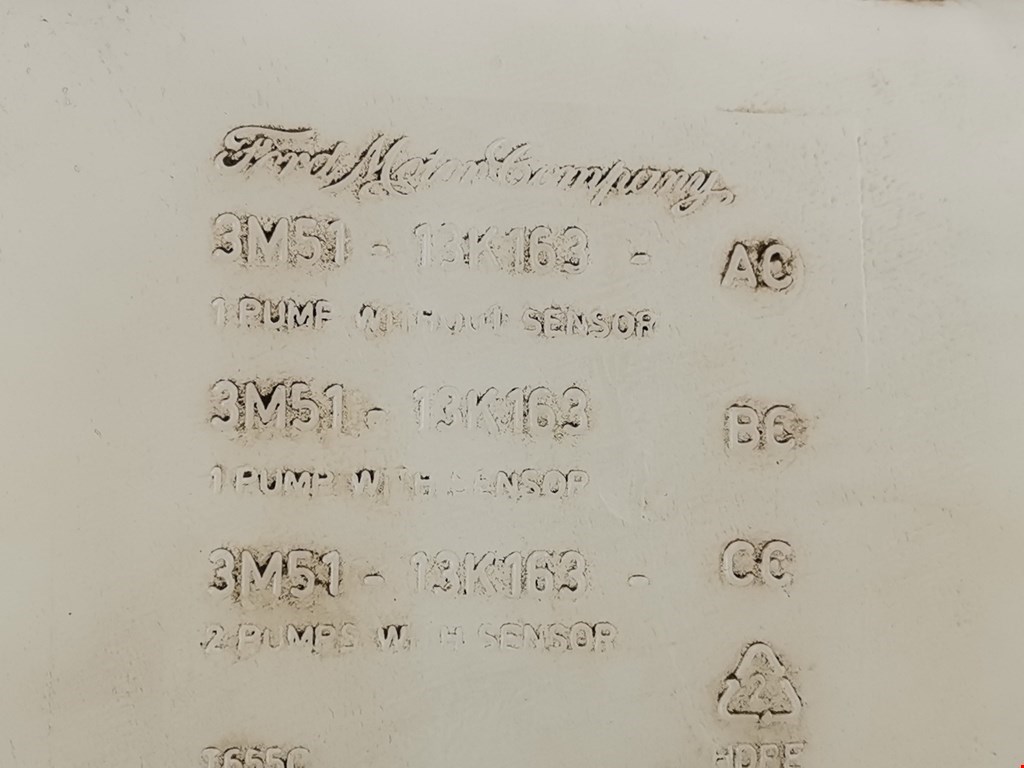 Ford Motor Company
3M51 - 13K163 - AC
1 PUMP WITHOUT SENSOR
3M51 - 13K163 BC
1 PUMP WITH SENSOR
3M51 - 13K163 - CC
2 PUMPS WITH SENSOR
2
HDPE